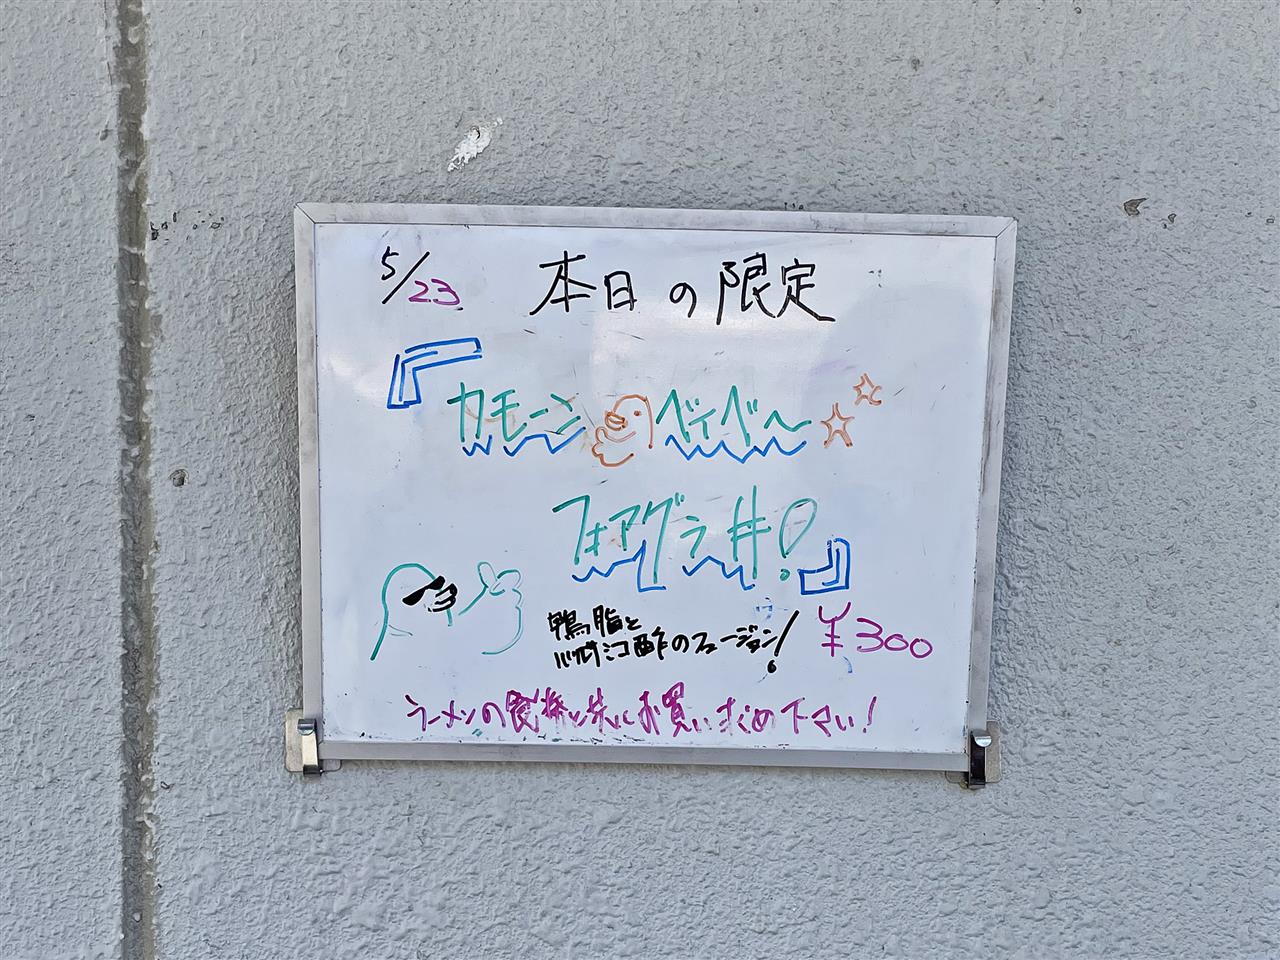 5/23 本日の限定
『カモーンベイベー
フォアグラ丼!』
鴨脂と
バルサミコ酢のフュージョン! ¥300
ラーメンの食券と共にお買い求め下さい!